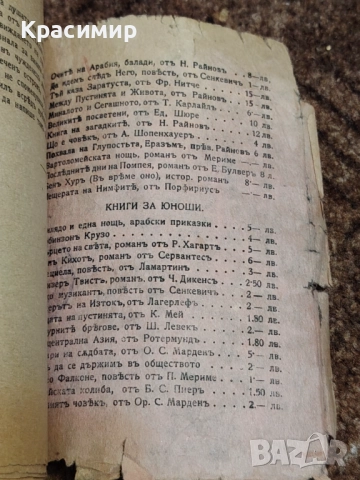 Красимир
Очитѣ на Арабия, балади, отъ Н. Райновъ . 8— лв.
Да идемъ слѣдъ Него, повѣсть, отъ Сенкевичъ 1— лв.
Тъй каза Заратуста, отъ Фр. Нитче . . 15— лв.
Между Пустинята и Живота, отъ Н. Райновъ . 15— лв.
Миналото и Сегашното, отъ Т. Карлайлъ . 6 лв.
Великитѣ посветени, отъ Ед. Шюре . . 10 лв.
Книга на загадкитѣ, отъ Н. Райновъ . . 12 лв.
Що е човѣкъ, отъ А. Шопенхауеръ . . 4 лв.
Похвала на Глупостьта, Еразъмъ, прѣв. Райновъ 6 лв.
Вартоломейската нощь, романъ отъ Мериме . 8 лв.
Послѣднитѣ дни на Помпея, романъ, отъ Е. Булверъ
Бенъ Хуръ (Въ врѣме оно), истор. романъ 8 лв.
Пещерата на Нимфитѣ, отъ Порфириусъ
КНИГИ ЗА ЮНОШИ.
хилядо и една нощь, арабски приказки . 5— лв.
бинзонъ Крузо . . . 4— лв.
сърцето на свѣта, романъ отъ Р. Хагартъ . 4— лв.
ъ Кихотъ, романъ, отъ Сервантесъ . 5— лв.
циела, повѣсть, отъ Ламартинъ . 3— лв.
веръ Твистъ, романъ, отъ Ч. Дикенсъ . 2·50 лв.
музикантъ, отъ Сенкевичъ . 1— лв.
въ на Изтокъ, отъ Лагерлефъ . 2— лв.
ята на пустинята, отъ К. Мей . 1.50 лв.
урнитѣ брѣгове, отъ Ш. Левекъ . 2— лв.
централна Азия, отъ Ротермундъ . 1.80 лв.
ари на садбата, отъ О. С. Марденъ . 5— лв.
да се държимъ въ обществото . 2— лв.
о Фалконе, повѣсть отъ П. Мериме . 2— лв.
йската колиба, отъ Б. С. Пиеръ . 1.50 лв.
ниятъ човѣкъ, отъ Ор. С. Марденъ . 2— лв.
BAZAR